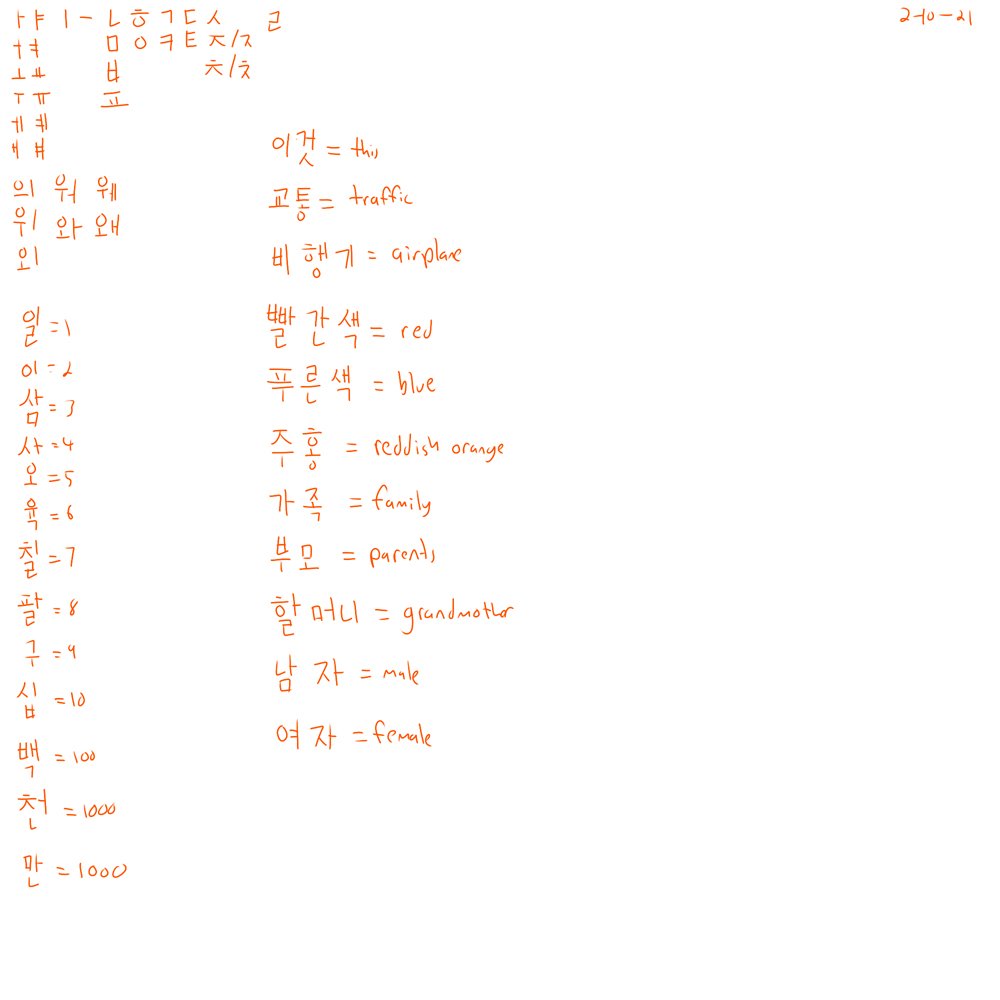 2-10-21
ㅏ ㅑ ㅣ ㅡ ㄴ ㅎ ㄱ ㄷ ㅅ ㄹ
ㅓ ㅕ ㅁ ㅇ ㅋ ㅌ ㅈ/ㅈ
ㅗ ㅛ ㅂ ㅊ/ㅊ
ㅜ ㅠ ㅍ
ㅔ ㅖ
ㅐ ㅒ
의 워 웨
위 와 왜
외
일 = 1
이 = 2
삼 = 3
사 = 4
오 = 5
육 = 6
칠 = 7
팔 = 8
구 = 9
십 = 10
백 = 100
천 = 1000
만 = 1000
이것 = this
교통 = traffic
비행기 = airplane
빨간색 = red
푸른색 = blue
주홍 = reddish orange
가족 = family
부모 = parents
할머니 = grandmother
남자 = male
여자 = female